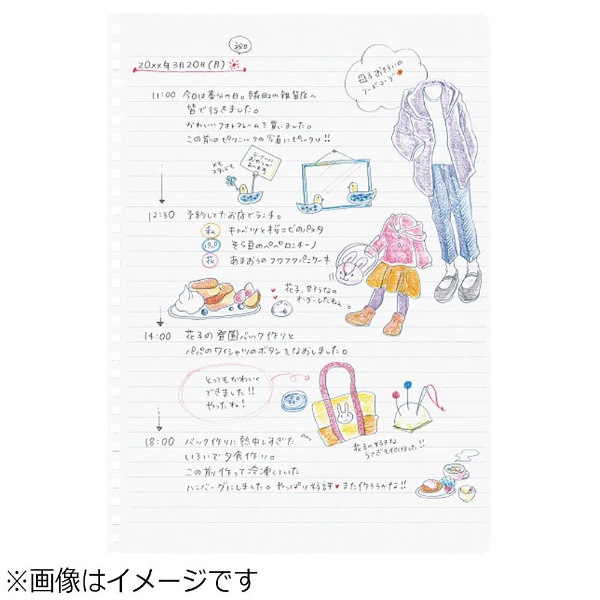 20××年3月20日(月)
母子おそろいの
フードコーデ
11:00 今日は春分の日。隣町の雑貨店へ
皆で行きました。
かわいいフォトフレームを買いました。
この前のピクニックの写真にピッタリ!!
メモ
スタンドも
12:30 予約してたお店でランチ。
私 キャベツと桜エビのパスタ
パパ そら豆のペペロンチーノ
花 あまおうのフワフワパンケーキ
花子、甘そうなの
オーダーしたねぇ。
14:00 花子の登園バック作りと
パパのワイシャツのボタンをなおしました。
とってもかわいく
できました!!
やったね!
花子の好きな
うさぎも付けました!!
18:00 バック作りに熱中しすぎた
いきおいで夕食作り。
この前作って冷凍していた
ハンバーグにしました。やっぱり好評♥また作ろうかな!!
※画像はイメージです